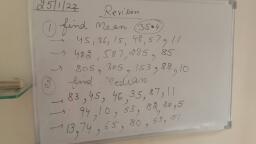 25/1/22
Revision
① find Mean (35.4)
→ 45, 36, 15, 48, 57, 11
→ 482, 587, 485, 85
→ 805, 305, 153, 88, 10
② find Median
→ 83, 45, 46, 35, 87, 11
→ 94, 10, 53, 88, 20, 5
→ 13, 74, 55, 80,